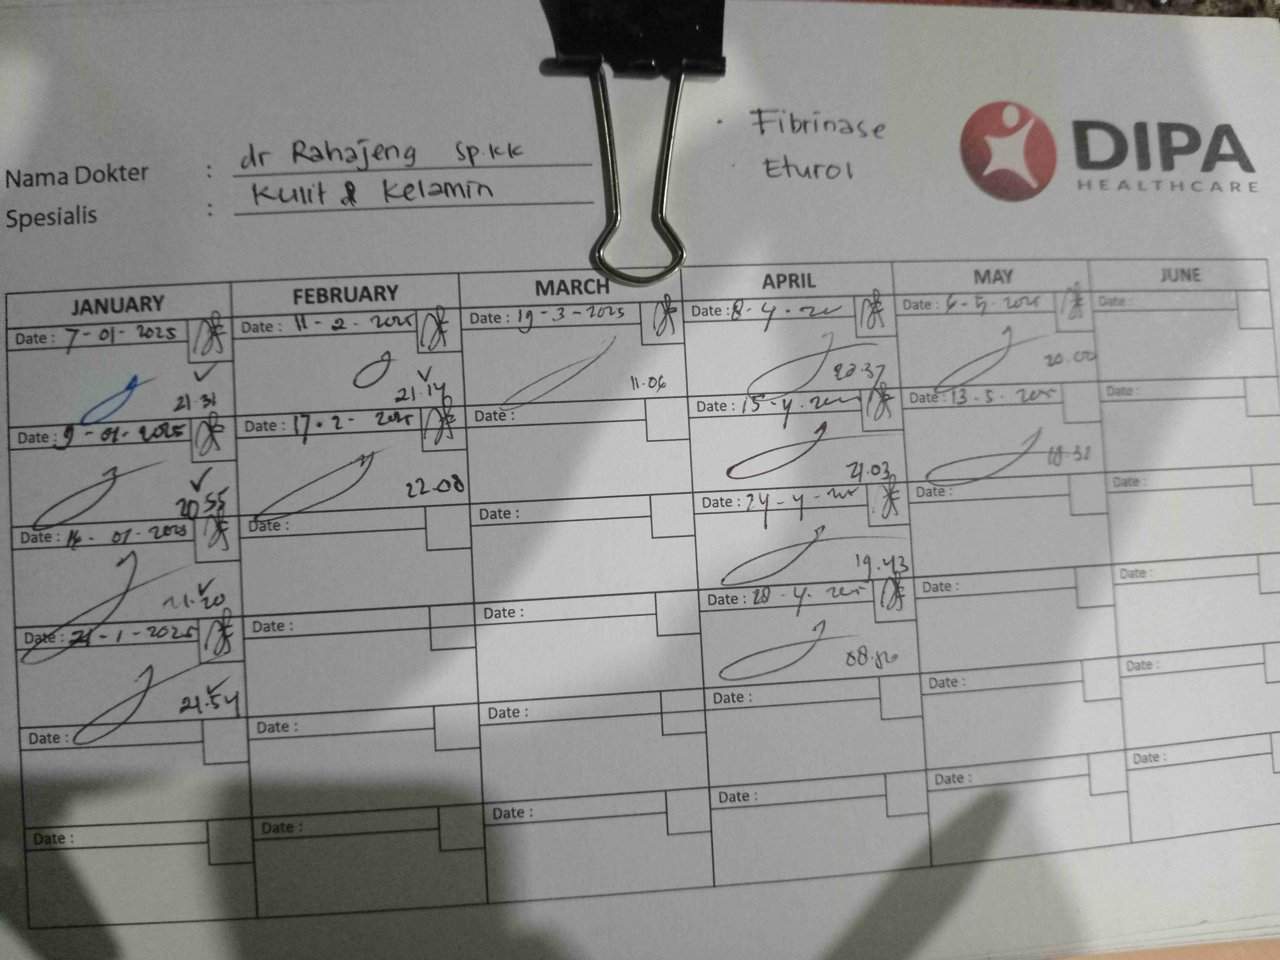 Nama Dokter : dr Rahajeng Sp.KK
Spesialis : Kulit & Kelamin
• Fibrinase
• Eturol
DIPA
HEALTHCARE
JANUARY
Date : 7-01-2025
21.31
Date : 9-01-2025
20.55
Date : 14-01-2025
21.20
Date : 21-1-2025
21.54
Date :
Date :
FEBRUARY
Date : 11-2-2025
21.14
Date : 17-2-2025
22.08
Date :
Date :
Date :
Date :
MARCH
Date : 19-3-2025
11.06
Date :
Date :
Date :
Date :
Date :
APRIL
Date : 8-4-
20.37
Date : 15-4-
21.03
Date : 24-4-
19.43
Date : 28-4-
Date :
Date :
MAY
Date : 6-5-2025
20.00
Date : 13-5-
18.31
Date :
Date :
Date :
Date :
JUNE
Date :
Date :
Date :
Date :
Date :
Date :